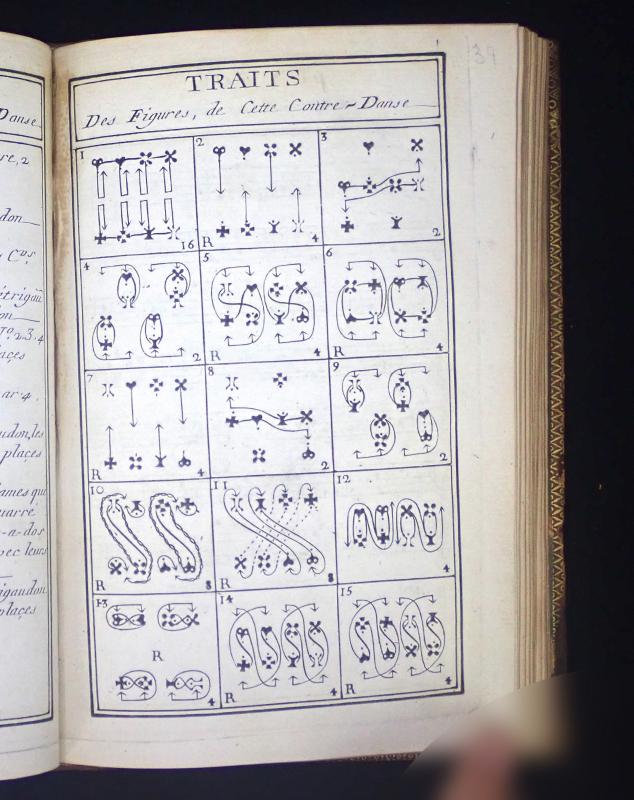 39
TRAITS
Des Figures, de Cette Contre=Danse
Danse
re, 2
don
C^ds.
2.3.4
laçes
ar 4.
audon, les
places
ames qui
uarre
-a-dos
vec leurs
igaudon
plaçes
1
16
2
R
4
3
2
4
2
5
R
4
6
R
4
7
R
4
8
2
9
2
10
R
8
11
R
8
12
4
13
R
4
14
R
4
15
R
4